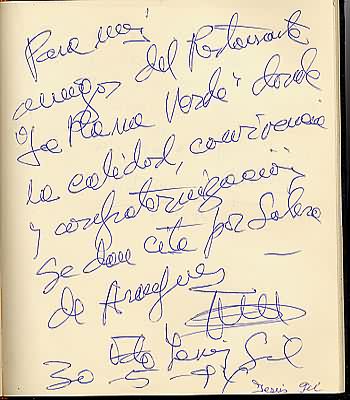 Para mis
amigos del Restaurante
"La Rana Verde" donde
la calidad, convivencia
y confraternización
se dan cita por
de Aranjuez
Jesús Gil
30 - 5 -
Jesus Gil